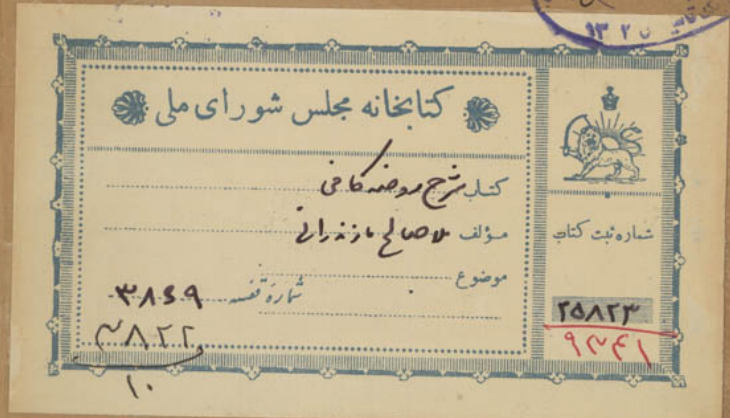 ۱۳۲۵
کتابخانه مجلس شورای ملی
کتاب شرح روضه کافی
مؤلف ملا صالح مازندرانی
موضوع
شماره قفسه ۳۸۶۹
۳۸۲۲
۱۰
شماره ثبت کتاب
۲۵۸۲۳
۹۳۴۱